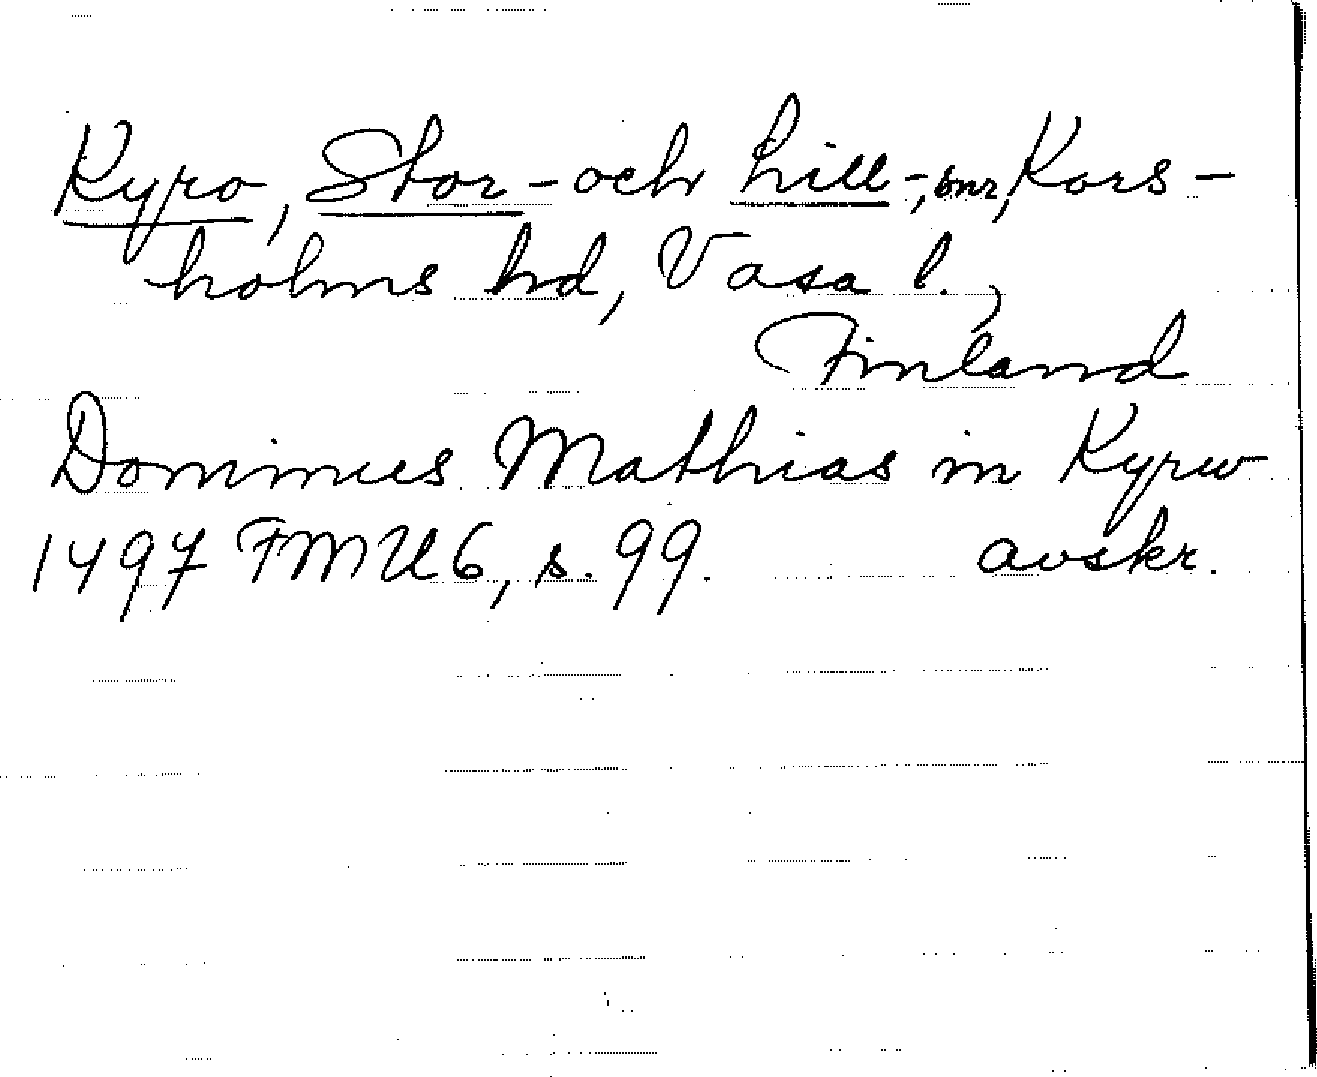 Kyro, Stor- och Lill-, snr, Kors-
holms hd, Vasa l.,
Finland
Dominus Mathias in Kyrw
1497 FMU6, s. 99. avskr.